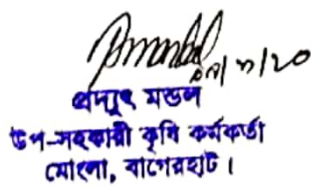 প্রদ্যুৎ মন্ডল
উপ-সহকারী কৃষি কর্মকর্তা
মোংলা, বাগেরহাট।